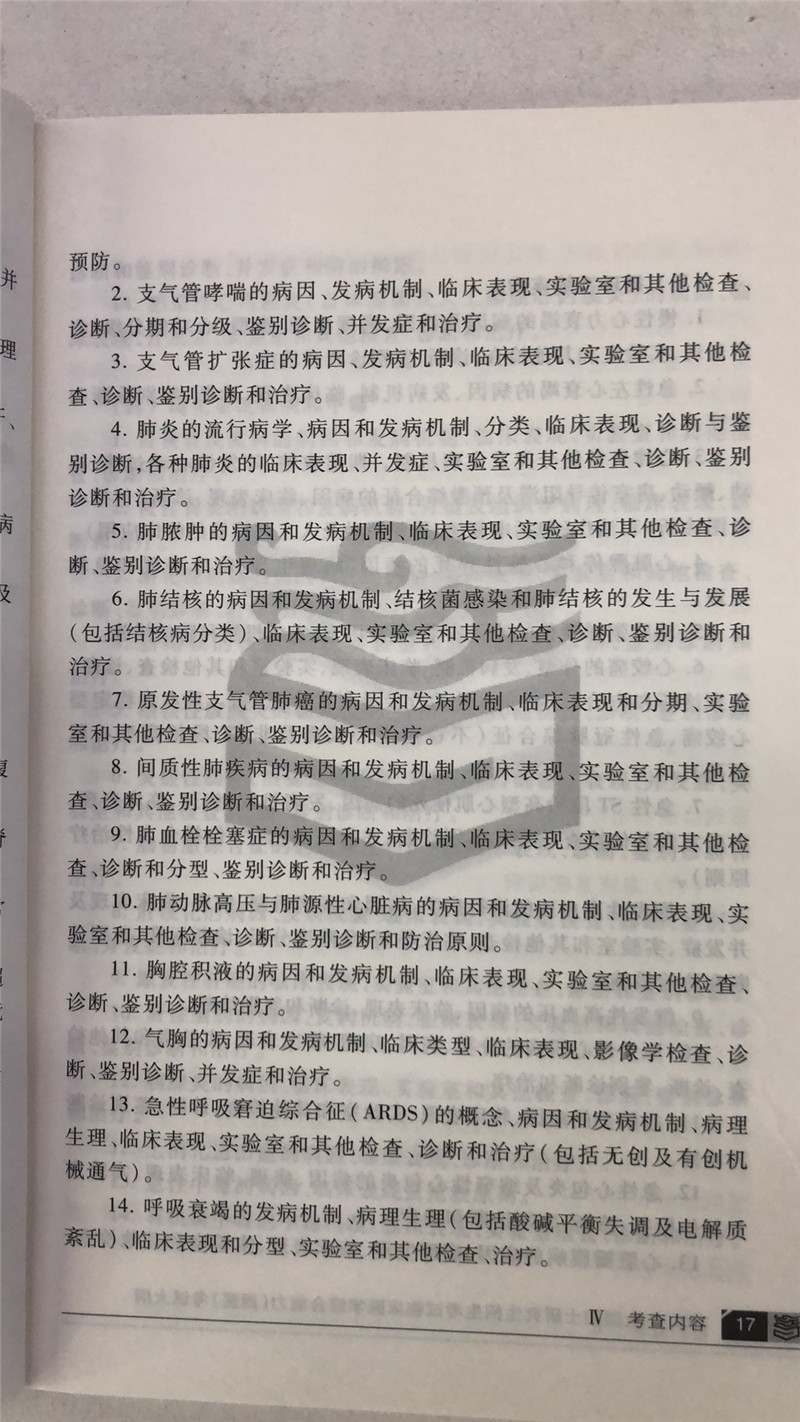 预防。
2. 支气管哮喘的病因、发病机制、临床表现、实验室和其他检查、
诊断、分期和分级、鉴别诊断、并发症和治疗。
3. 支气管扩张症的病因、发病机制、临床表现、实验室和其他检
查、诊断、鉴别诊断和治疗。
4. 肺炎的流行病学、病因和发病机制、分类、临床表现、诊断与鉴
别诊断,各种肺炎的临床表现、并发症、实验室和其他检查、诊断、鉴别
诊断和治疗。
5. 肺脓肿的病因和发病机制、临床表现、实验室和其他检查、诊
断、鉴别诊断和治疗。
6. 肺结核的病因和发病机制、结核菌感染和肺结核的发生与发展
(包括结核病分类)、临床表现、实验室和其他检查、诊断、鉴别诊断和
治疗。
7. 原发性支气管肺癌的病因和发病机制、临床表现和分期、实验
室和其他检查、诊断、鉴别诊断和治疗。
8. 间质性肺疾病的病因和发病机制、临床表现、实验室和其他检
查、诊断、鉴别诊断和治疗。
9. 肺血栓栓塞症的病因和发病机制、临床表现、实验室和其他检
查、诊断和分型、鉴别诊断和治疗。
10. 肺动脉高压与肺源性心脏病的病因和发病机制、临床表现、实
验室和其他检查、诊断、鉴别诊断和防治原则。
11. 胸腔积液的病因和发病机制、临床表现、实验室和其他检查、
诊断、鉴别诊断和治疗。
12. 气胸的病因和发病机制、临床类型、临床表现、影像学检查、诊
断、鉴别诊断、并发症和治疗。
13. 急性呼吸窘迫综合征(ARDS)的概念、病因和发病机制、病理
生理、临床表现、实验室和其他检查、诊断和治疗(包括无创及有创机
械通气)。
14. 呼吸衰竭的发病机制、病理生理(包括酸碱平衡失调及电解质
紊乱)、临床表现和分型、实验室和其他检查、治疗。
Ⅳ 考查内容 17
并
理
病
及